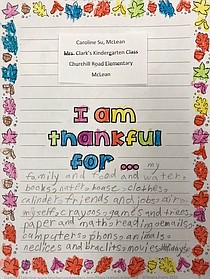 Caroline Su, McLean
Mrs. Clark's Kindergarten Class
Churchill Road Elementary
McLean
I am
thankful
for... my
family and food and water,
books, water, house, clothes,
calinder, friends and jobs, air,
myself, crayons, games and trees,
paper and math, reading, emails,
campputers, phons, animals,
neclices and braclits, movies, holidays,